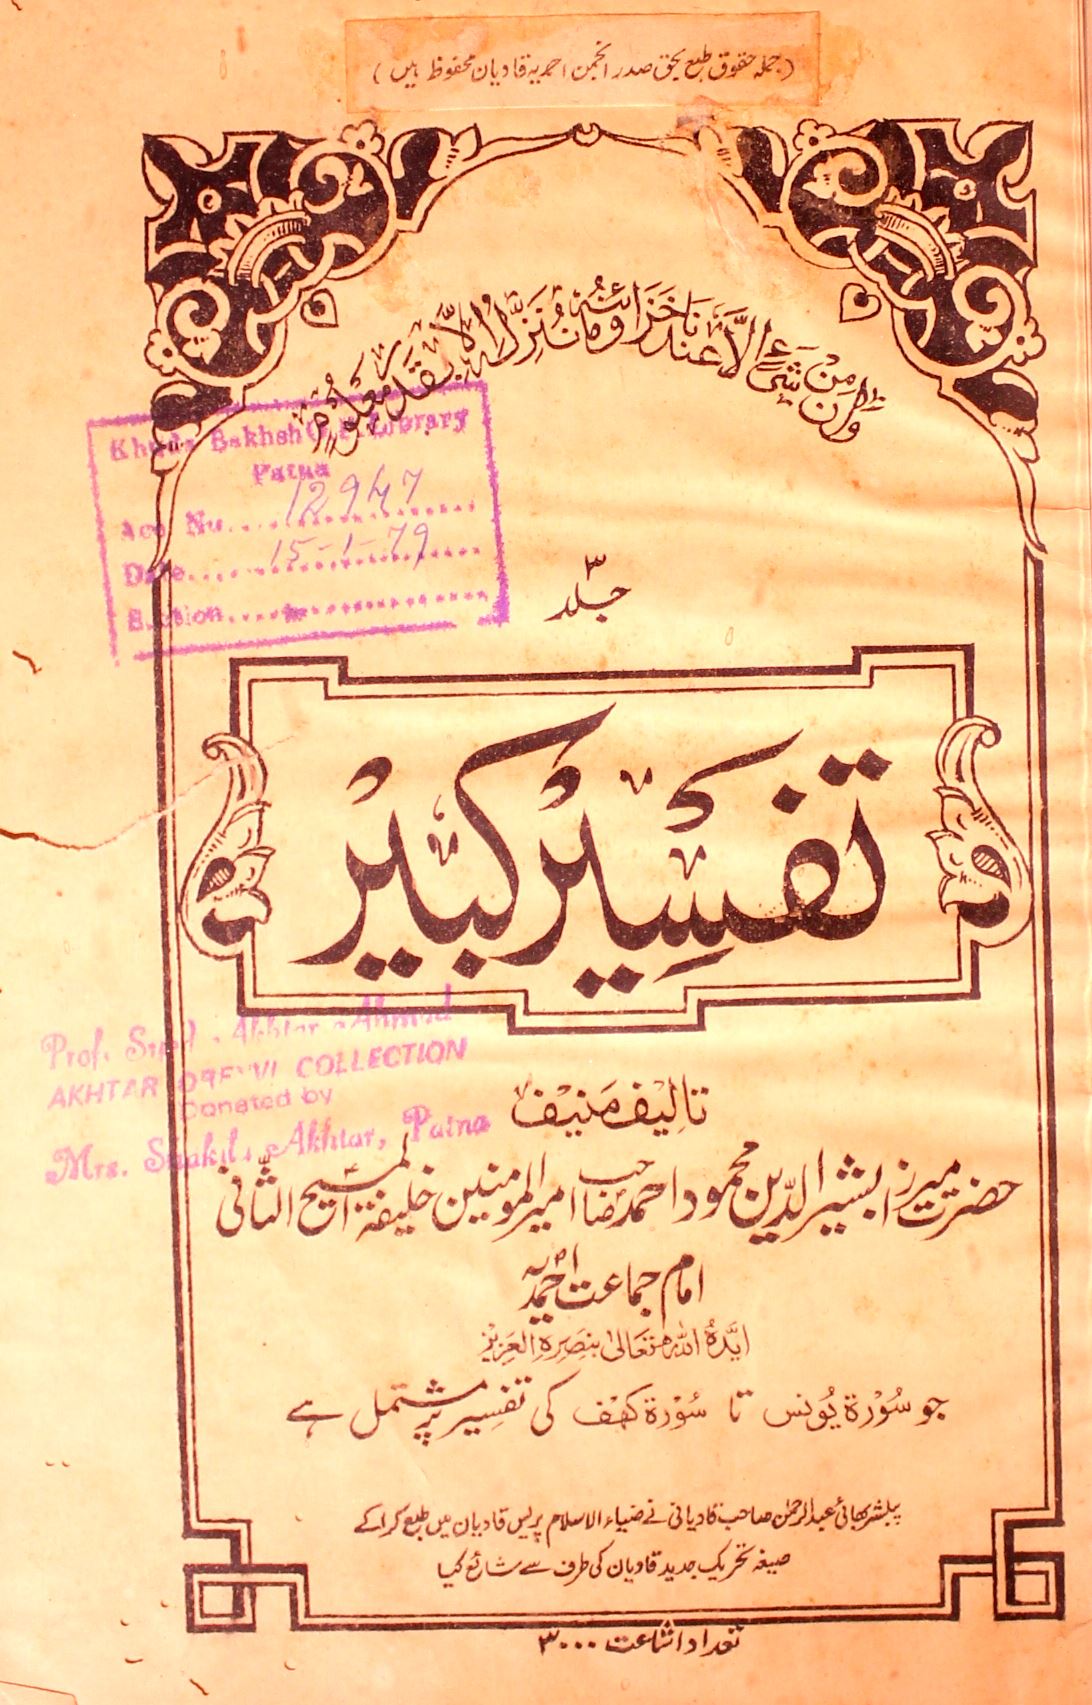 (جملہ حقوق طبع بحق صدر انجمن احمدیہ قادیان محفوظ ہیں)
وَاِنْ مِّنْ شَیْءٍ اِلَّا عِنْدَنَا خَزَائِنُهٗ وَمَا نُنَزِّلُهٗ اِلَّا بِقَدَرٍ مَّعْلُوْمٍ
Khuda Bakhsh O. P. Library
Patna
Acc. No. 12947
Date 15-1-79
Section
جلد ۳
تفسیر کبیر
Prof. Syed Akhtar Ahmad
AKHTAR ORENVI COLLECTION
Donated by
Mrs. Shakila Akhtar, Patna
تالیف منیف
حضرت میرزا بشیر الدین محمود احمد صاحب امیر المومنین خلیفۃ المسیح الثانی
امام جماعت احمدیہ
ایدہ اللہ تعالیٰ بنصرہ العزیز
جو سُوْرۃ یُونس تا سُوْرۃ کہف کی تفسیر پر مشتمل ہے
پبلشر بھائی عبدالرحمٰن صاحب قادیانی نے ضیاء الاسلام پریس قادیان میں طبع کرا کے
صیغہ تحریک جدید قادیان کی طرف سے شائع کیا
تعداد اشاعت ۳۰۰۰